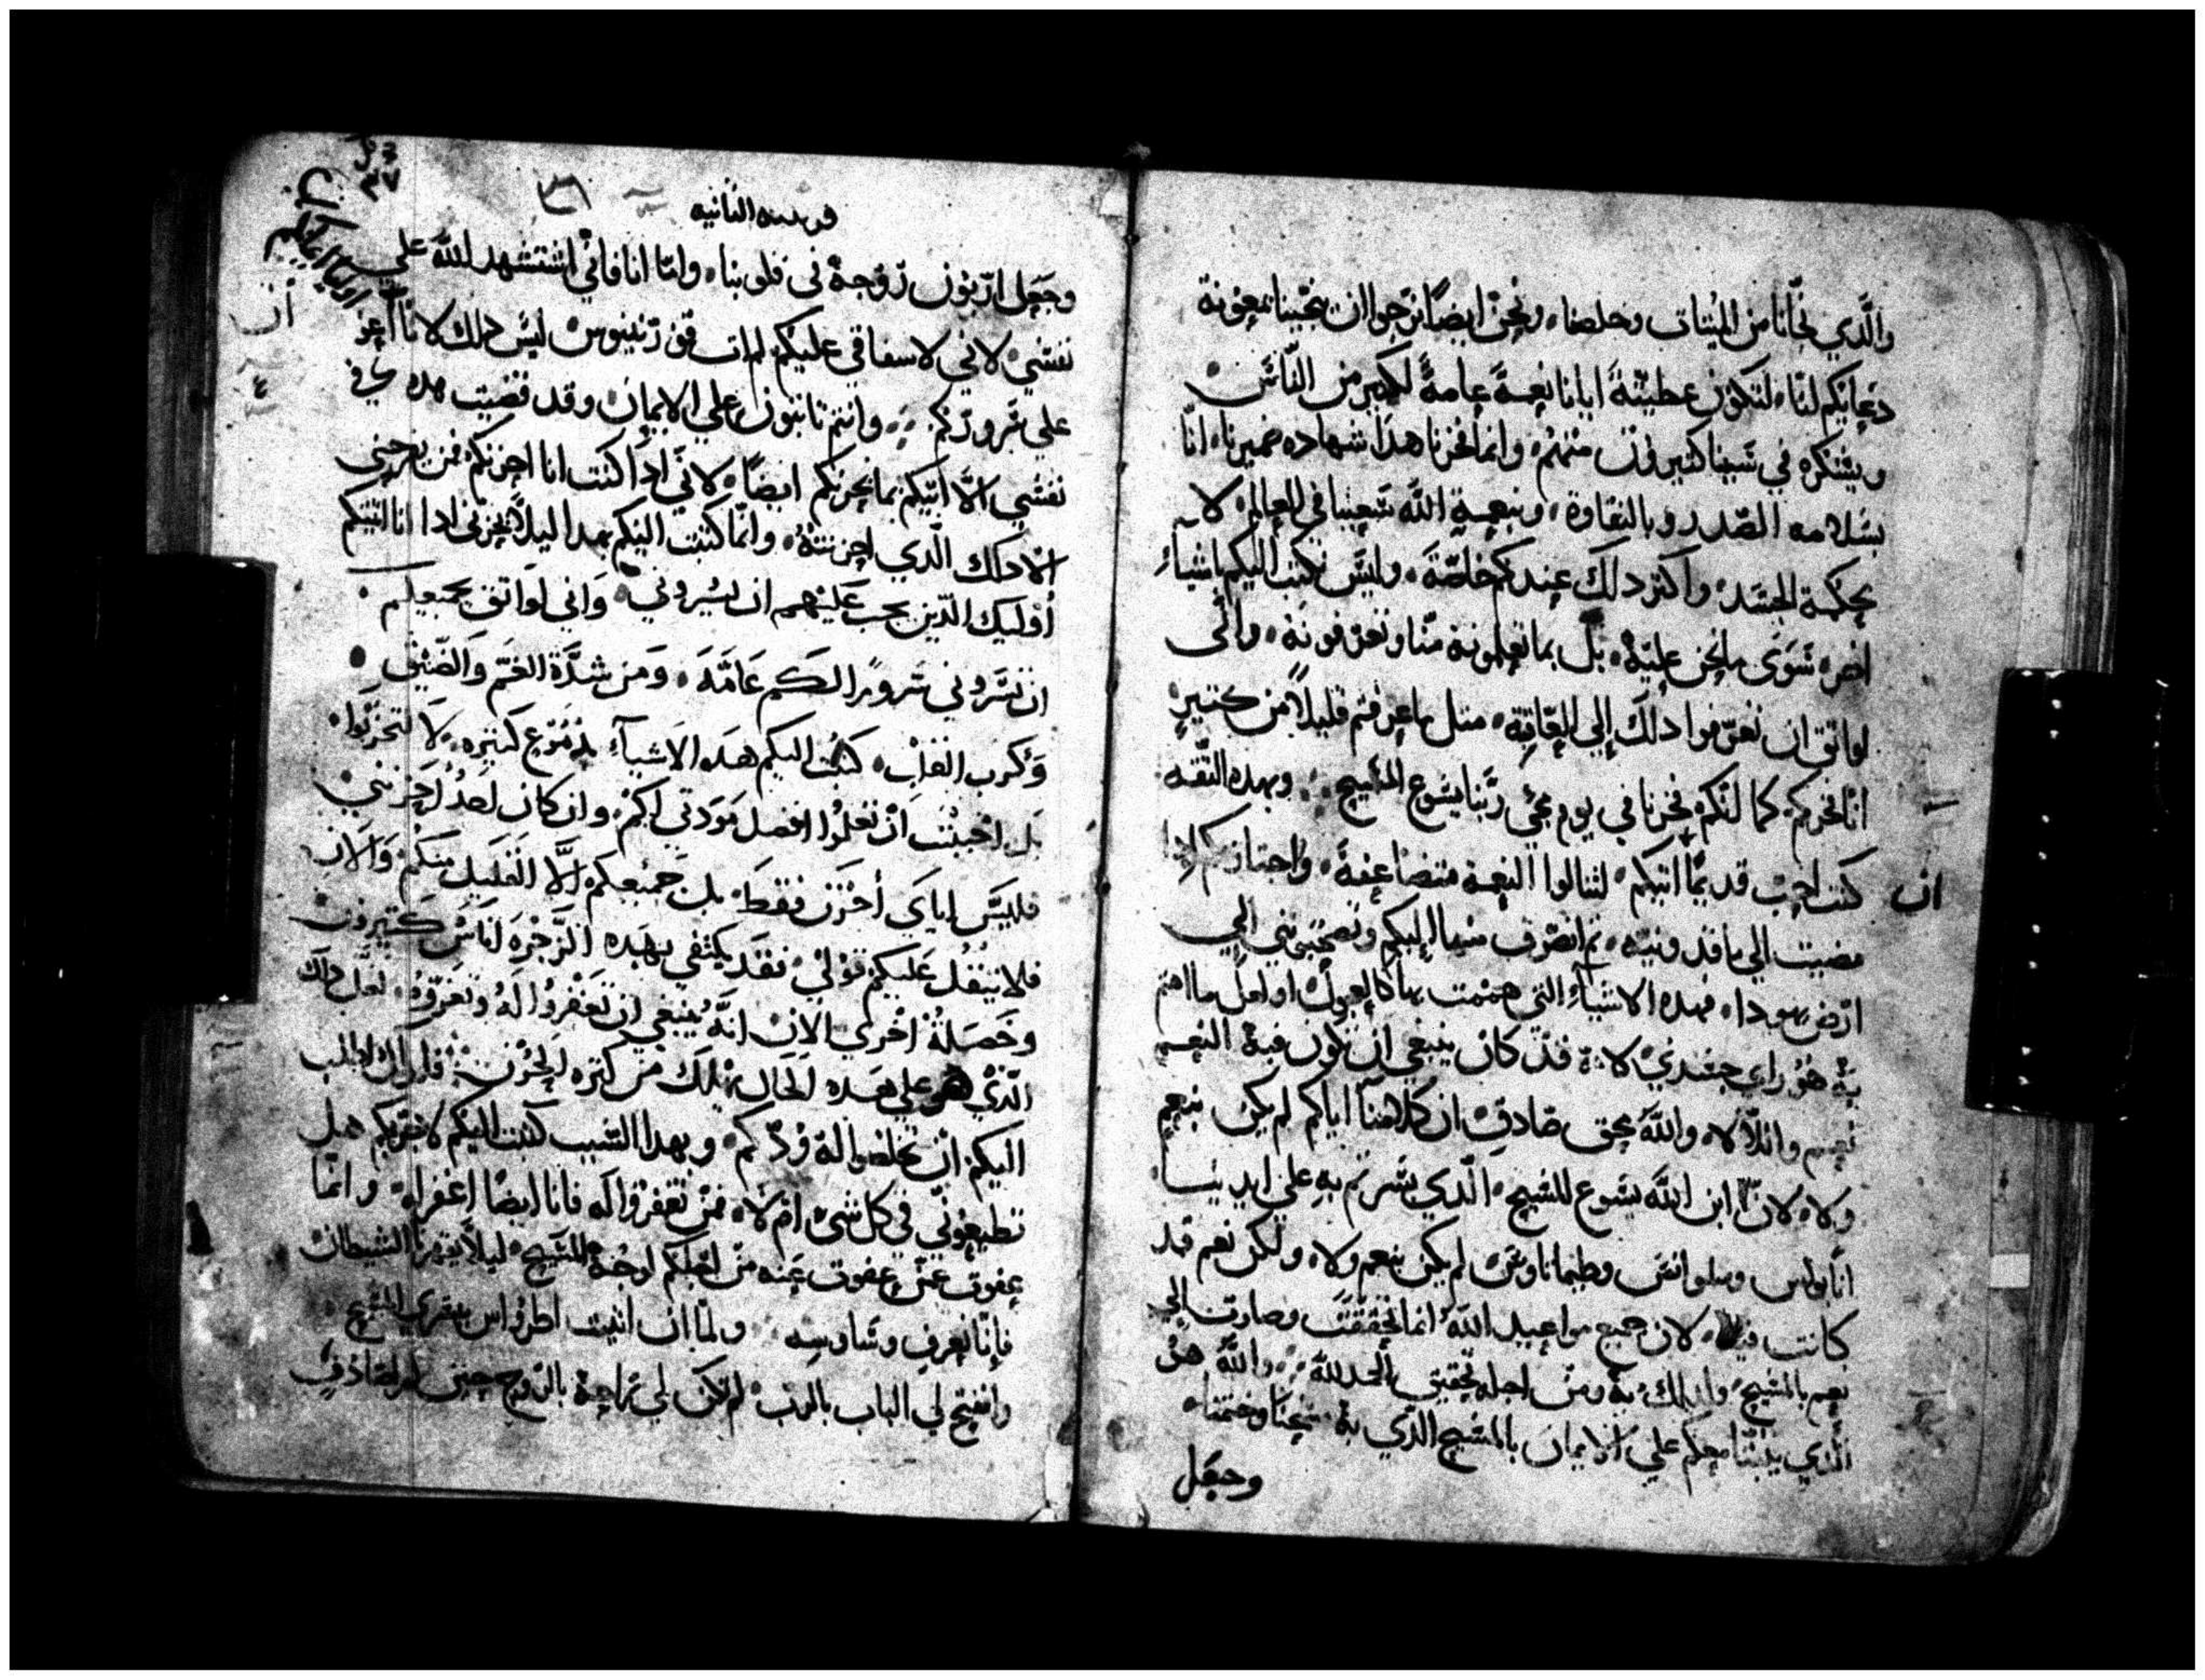 والَّدي نجّانا من الميتات وخلصنا، ونحن ايضًا نرجوا ان ينجّينا بمعونة
دعايكم لنا، لتكون عطيّتة ايانا نعمةً عامةً لكثير من النّاس
ويشكره في سببنا كثيرون منهم، وانما فخرنا هدا شهاده ضميرنا، انّا
بسلامه الصّدر وبالنقاوة، وبنعمة اللّه سعينا في العالم، لا
بحكمة الجسد، واكتر دلك عندكم خاصّةً، وليس نكتب اليكم باشياء
اخر، سوى ما نحن عليه، بل بما تعلمونه منّا وتعرفونه، وانّى
لواتق ان تعرفوا دلك إلى العاقبة، متل ما عرفتم قليلاً من كتير
انّا فخركم، كما انكم فخرنا في يوم مجي ربّنا يسوع المسيح، وبهده التّقه
كنت احب قديمًا اتيكم، لتنالوا النعمة متضاعفة، واجتاز بكم ادا
ان
مضيت الي ماقدونيه، تم انصرف منها اليكم وتصحبوني الي
ارض يهودا، فهده الاشياء التى هممت بها كالعجول، او لعل ما اهتم
به هو راي جسدي، لانه قد كان ينبغي ان تكون فيه النعم
نعم واللّا لا، واللّه محق صادق ان كلامنا اياكم لم يكن بنعم
ولا، لانّ ابن اللّه يسوع المسيح، الّدي بشرتم به على ايدينا،
انا بولس وسلوانس وطيماتاوس، لم يكن بنعم ولا، ولكن نعم قد
كانت فيه، لان جميع مواعيد اللّه انما تحققت وصارت الي
نعم بالمسيح، ولدلك به ومن اجله نحقق الحمد للّه، واللّه هو
الّدي يتبّتنا معكم على الايمان بالمسيح الّدي به مسحنا وختمنا،
وجعل
قورنتيه التانيه
وجعل اربون روحه في قلوبنا، وامّا انا فانّي استشهد اللّه علي
نفسي، لاني لاشفاقي عليكم لم ات قورنتيوس، ليس دلك لانا
ان
علي سروركم، وانتم تابتون علي الايمان، وقد قضيت هده في
٤
نفسي الّا اتيكم بما يحزنكم ايضًا، لانّي ادا كنت انا احزنكم فمن يفرحني
الّا دلك الّدي احزنته، وانّما كتبت اليكم بهدا ليلاّ يحزني ادا انا اتيتكم
أوليك الّدين يجب عليهم ان يسروني، وانى لواتق بجميعكم
ان تسّروني سرورًا لكم عامّه، ومن شدّة الغمّ والضّيق
وكرب القلب، كتبت اليكم هده الاشيآء بدموع كتيره، لا لتحزنوا،
بل احببت ان تعلموا افضل مودتي لكم، وان كان احدٌ احزنني
فليس إياي أحزن فقط، بل جميعكم الّا القليل منكم، والان
فلا يتقل عليكم قولي، فقد يكتفي بهده الزّجره لناس كتيرون
وخصلة أخري الان انّه ينبغي ان تغفروا له وتعزّوه، لعل دلك
الّدي هو علي هده الحال يهلك من كتره الحزن، فلدلك اطلب
اليكم ان تخلصوا له ودّكم، وبهدا السّبب كتبت اليكم لاجربكم هل
تطيعوني في كل شئ ام لا، فمن تغفروا له فانا ايضًا اغفر له، وانّما
عفوت عمّن عفوت عنه من اجلكم اوجه المسيح، ليلاّ يقهرنا الشيطان
فإنّا نعرف وساوسه، ولمّا ان اتيت اطرواس ببشري المسيح،
وانفتح لي الباب بالرب، لم تكن لي راحة بالروح حين لم اصادف